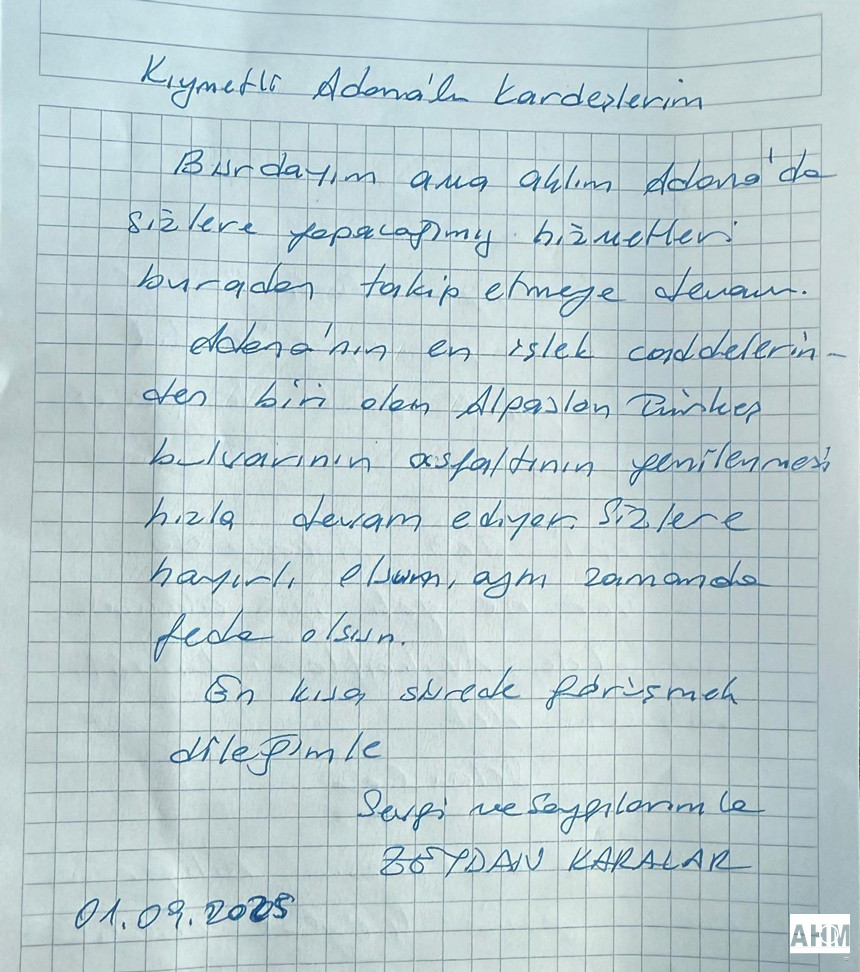 Kıymetli Adana'lı Kardeşlerim
Burdayım ama aklım Adana'da
sizlere yapacağımız hizmetleri
buradan takip etmeye devam.
Adana'nın en işlek caddelerin-
den biri olan Alpaslan Türkeş
bulvarının asfaltının yenilenmesi
hızla devam ediyor. Sizlere
hayırlı olsun, aynı zamanda
feda olsun.
En kısa sürede görüşmek
dileğimle
Sevgi ve Saygılarımla
ZEYDAN KARALAR
01.09.2025
AHM